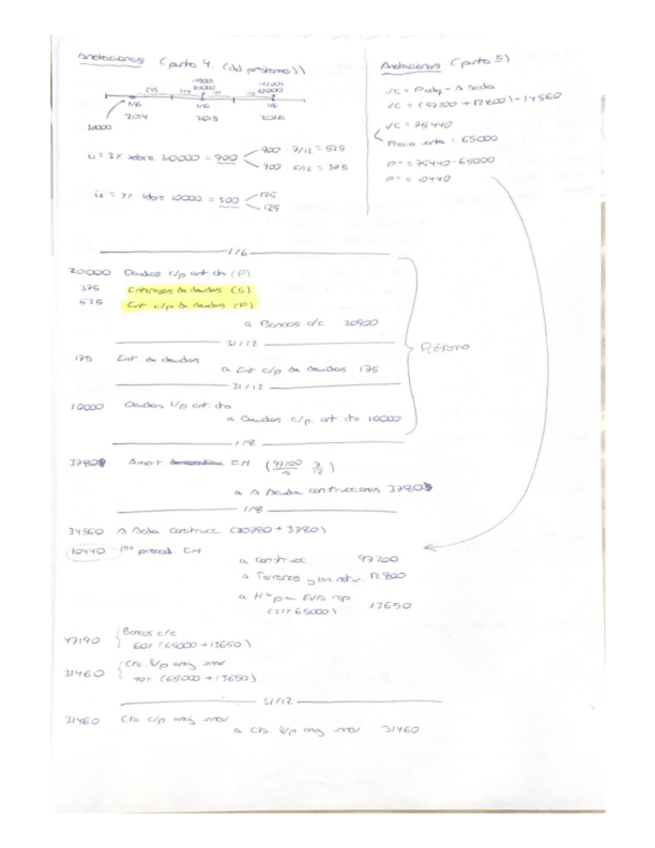 Anotaciones (punto 4. (del préstamo))
20000 20000
1/6 1/6 1/6
2014 2015 2016
i1 = 3% sobre = 900
900 · 7/12 = 525
900 · 5/12 = 375
i2 = 3% sobre 10000 = 300
175
125
Anotaciones (punto 5)
VC = P adq - A
VC = (97200 + 12800) - 14560
VC = 75440
Precio venta = 65000
Pª = 75440 - 65000
Pª = 10440
1/6
20000 Deudas c/p ent. cto (P)
375 Intereses de deudas (G)
525 Int c/p de deudas (P)
a Bancos c/c 20900
31/12
175 Int de deudas
a Int c/p de deudas 175
31/12
10000 Deudas l/p ent. cto
a Deudas c/p. ent. cto 10000
Préstamo
1/8
3780 Amort IM (97200/15 7/12)
a A construcciones 3780
1/8
34560 A construcc (30780 + 3780)
10440 Pª proced. IM
a construcc 97200
a Terrenos y bn. natur. 12800
a Hª pª IVA rep 13650
(21% 65000)
47190 Bancos c/c
60% (65000 + 13650)
31460 Cto. l/p enaj inmov
40% (65000 + 13650)
31/12
31460 Cto c/p enaj inmov
a Cto. l/p enaj inmov 31460